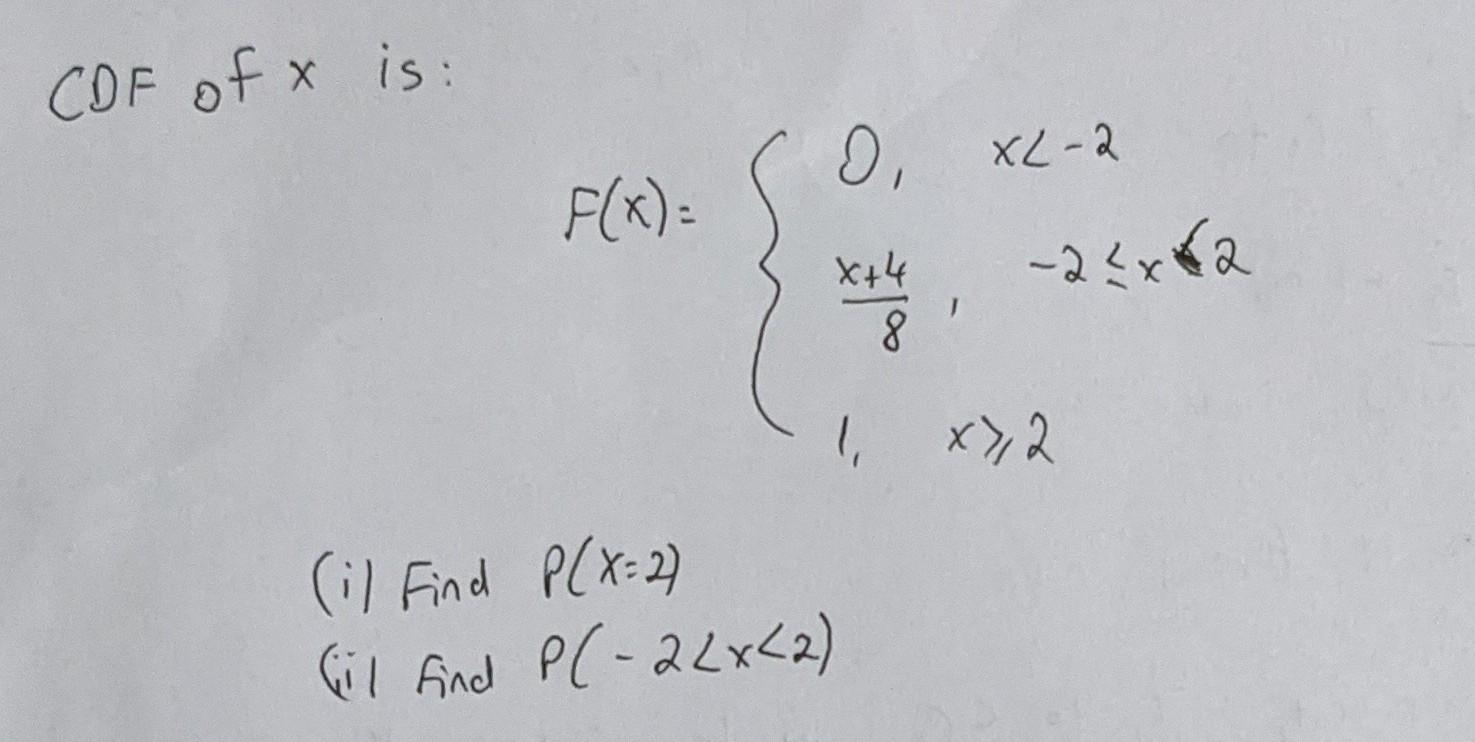 CDF of x is:
F(x)= { 0, x<-2
x+4/8, -2≤x<2
1, x≥2
(i) Find P(X=2)
(ii) Find P(-2<x<2)